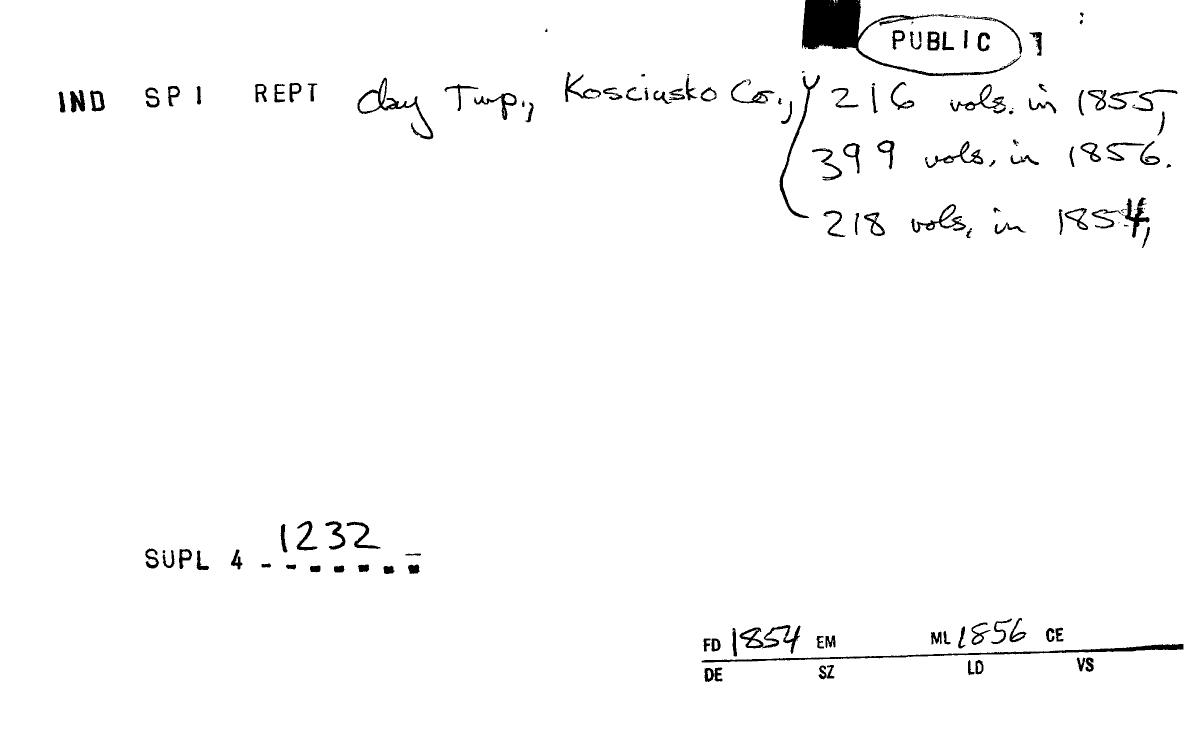 PUBLIC
IND SPI REPT Clay Twp., Kosciusko Co., 216 vols. in 1855,
399 vols. in 1856.
218 vols. in 1854,
1232
SUPL 4
FD 1854 EM ML 1856 CE
DE SZ LD VS